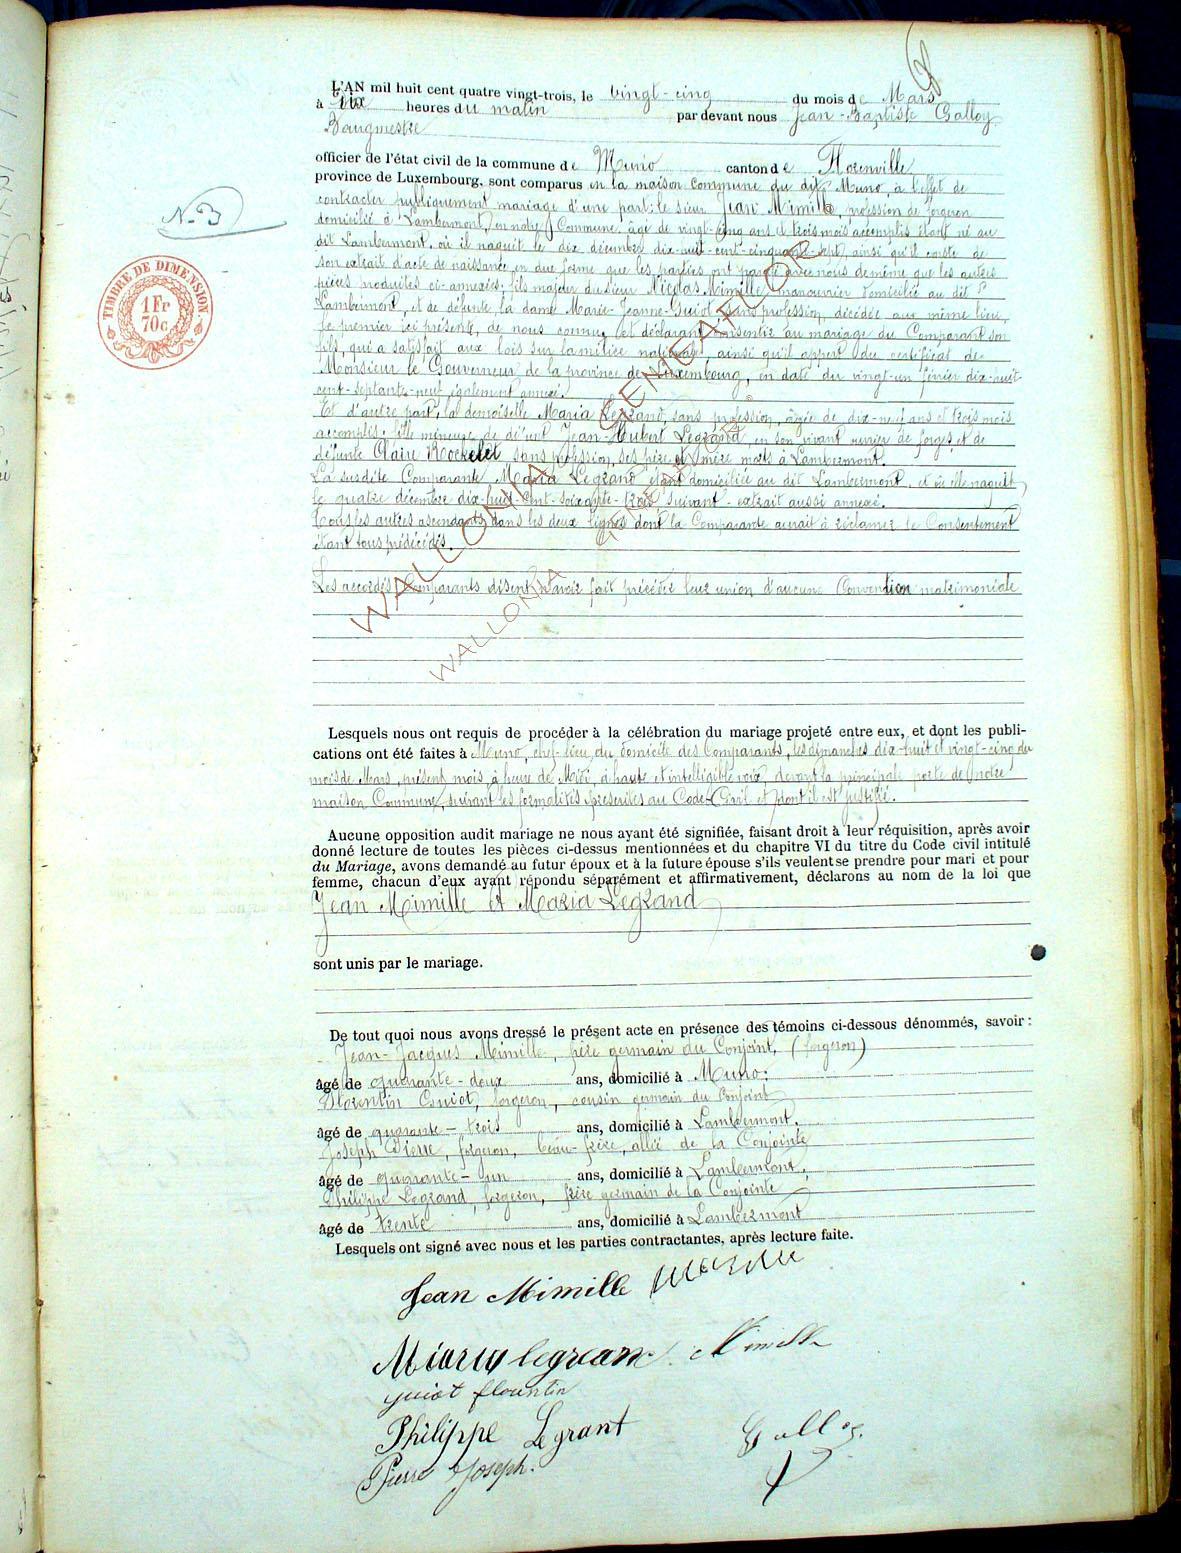 L'AN mil huit cent quatre vingt-trois, le vingt-cinq du mois de Mars
à dix heures du matin par devant nous Jean-Baptiste Galloy
Bourgmestre
officier de l'état civil de la commune de Muno canton de Florenville
province de Luxembourg, sont comparus en la maison commune du dit Muno, à l'effet de
contracter publiquement mariage d'une part: le sieur Jean Mimille, profession de forgeron
domicilié à Lambermont, en notre Commune, âgé de vingt-cinq ans et trois mois accomplis étant né au
dit Lambermont, où il naquit le dix décembre dix-huit-cent-cinquante-sept, ainsi qu'il conste de
son extrait d'acte de naissance en due forme que les parties ont avec nous de même que les autres
pièces produites ci-annexées, fils majeur du sieur Nicolas Mimille manouvrier domicilié au dit
Lambermont, et de défunte la dame Marie-Jeanne-Guiot sans profession, décédée au même lieu,
le premier ici présent, de nous connu, et déclarant consentir au mariage du Comparant son
fils, qui a satisfait aux lois sur la milice nationale ainsi qu'il appert du certificat de
Monsieur le Gouverneur de la province de Luxembourg, en date du vingt-un février dix-huit
cent-septante-neuf, également annexé.
Et d'autre part, la demoiselle Maria Legrand, sans profession, âgée de dix-neuf ans et trois mois
accomplis, fille mineure de défunt Jean-Hubert Legrand en son vivant ouvrier de forges et de
défunte Claire Rockelet sans profession, ses père et mère morts à Lambermont.
La susdite Comparante Maria Legrand étant domiciliée au dit Lambermont, et où elle naquit
le quatre décembre dix-huit-cent-soixante-trois suivant extrait aussi annexé.
Tous les autres ascendants dans les deux lignes dont la Comparante aurait à réclamer le Consentement
étant tous prédécédés.
Les accordés Comparants disent n'avoir fait précéder leur union d'aucune Convention matrimoniale
N. 3
TIMBRE DE DIMENSION
1 Fr
70 c
WALLONIA GENEAFLOR
WALLONIA
Lesquels nous ont requis de procéder à la célébration du mariage projeté entre eux, et dont les publi-
cations ont été faites à Muno, chef-lieu du domicile des Comparants, les dimanches dix-huit et vingt-cinq du
mois de Mars, présent mois, à heure de Midi, à haute et intelligible voix, devant la principale porte de notre
maison Commune, suivant les formalités prescrites au Code Civil et dont il est justifié.
Aucune opposition audit mariage ne nous ayant été signifiée, faisant droit à leur réquisition, après avoir
donné lecture de toutes les pièces ci-dessus mentionnées et du chapitre VI du titre du Code civil intitulé
du Mariage, avons demandé au futur époux et à la future épouse s'ils veulent se prendre pour mari et pour
femme, chacun d'eux ayant répondu séparément et affirmativement, déclarons au nom de la loi que
Jean Mimille et Maria Legrand
sont unis par le mariage.
De tout quoi nous avons dressé le présent acte en présence des témoins ci-dessous dénommés, savoir :
Jean-Jacques Mimille, frère germain du Conjoint, (forgeron)
âgé de quarante-deux ans, domicilié à Muno;
Florentin Guiot, forgeron, cousin germain du Conjoint
âgé de quarante-trois ans, domicilié à Lambermont.
Joseph Pierre, forgeron, beau-frère, allié de la Conjointe
âgé de quarante-un ans, domicilié à Lambermont,
Philippe Legrand, forgeron, frère germain de la Conjointe
âgé de trente ans, domicilié à Lambermont
Lesquels ont signé avec nous et les parties contractantes, après lecture faite.
Jean Mimille
Maria legran Mimille
guiot flourntin
Philippe Legrant
Galloy.
Pierre Joseph.